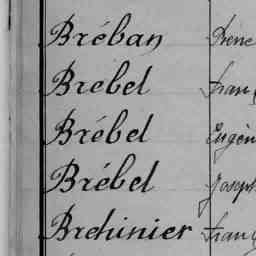 Bréban Irène
Brebel Fran
Brébel Eugèn
Brébel Joseph
Brehinier Fran